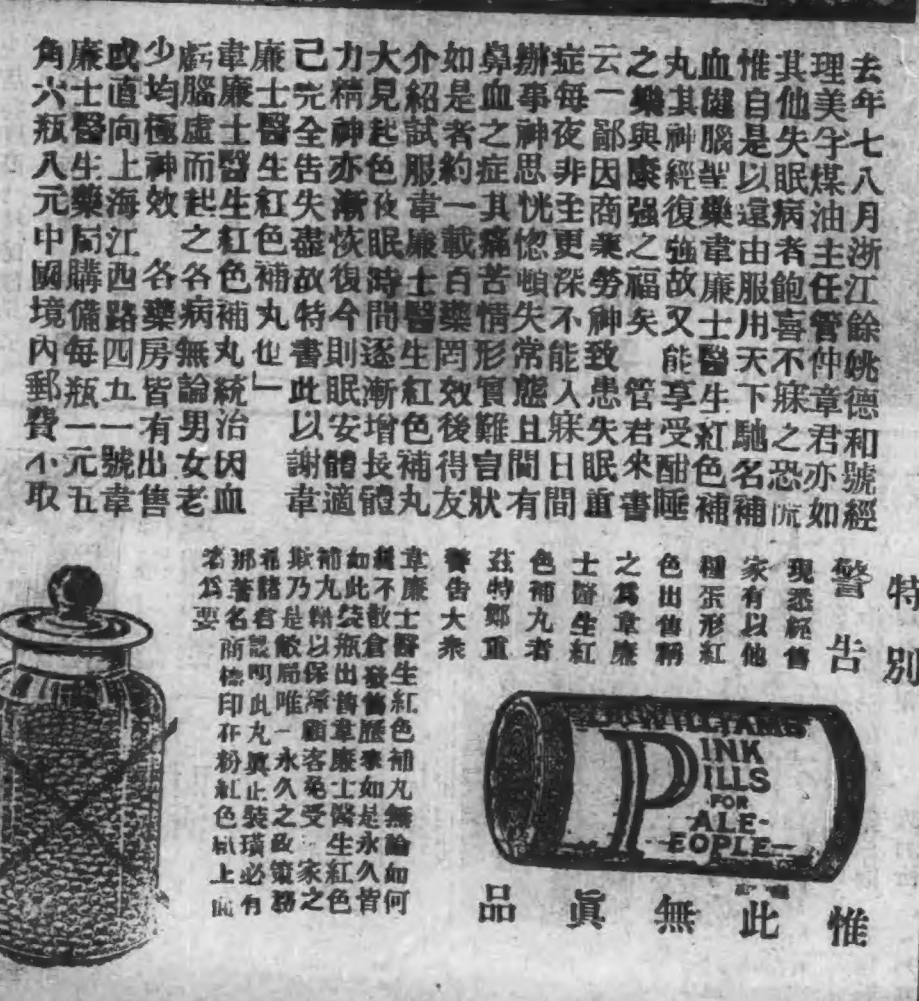 去年七八月浙江餘姚德和號經
理美孚煤油主任管仲章君亦如
其他失眠病者飽喜不寐之恐慌
惟自是以還由服用天下馳名補
血健腦聖藥韋廉士醫生紅色補
丸其神經復強故又能享受酣睡
之樂與康强之福矣 管君來書
云「鄙因商業勞神致患失眠重
症每夜非至更深不能入寐日間
辦事神思恍惚頓失常態且間有
鼻血之症其痛苦情形實難言狀
如是者約一載百藥罔效後得友
介紹試服韋廉士醫生紅色補丸
大見起色夜眠時間逐漸增長體
力精神亦漸恢復今則眠安體適
己完全告失盡故特書此以謝韋
廉士醫生紅色補丸也」
韋廉士醫生紅色補丸統治因血
虧腦虛而起之各病無論男女老
少均極神效 各藥房皆有出售
或直向上海江西路四五一號韋
廉士醫生藥局購備每瓶一元五
角六瓶八元中國境內郵費不取
特別
警告
現悉經售
家有以他
種形紅
色出售稱
之爲韋廉
士醫生紅
色補丸者
茲特鄭重
警告大衆
韋廉士醫生紅色補丸無論如何
不散倉發售歷來如是永久皆
如此裝瓶出售韋廉士醫生紅色
補丸以保障顧客免受家之
欺乃是敝局唯一永久之政策務
希諸君認明此丸眞正裝璜必有
那著名商標印在粉紅色紙上面
者爲要
DR WILLIAMS
PINK
PILLS
FOR
PALE
PEOPLE
惟此無眞品